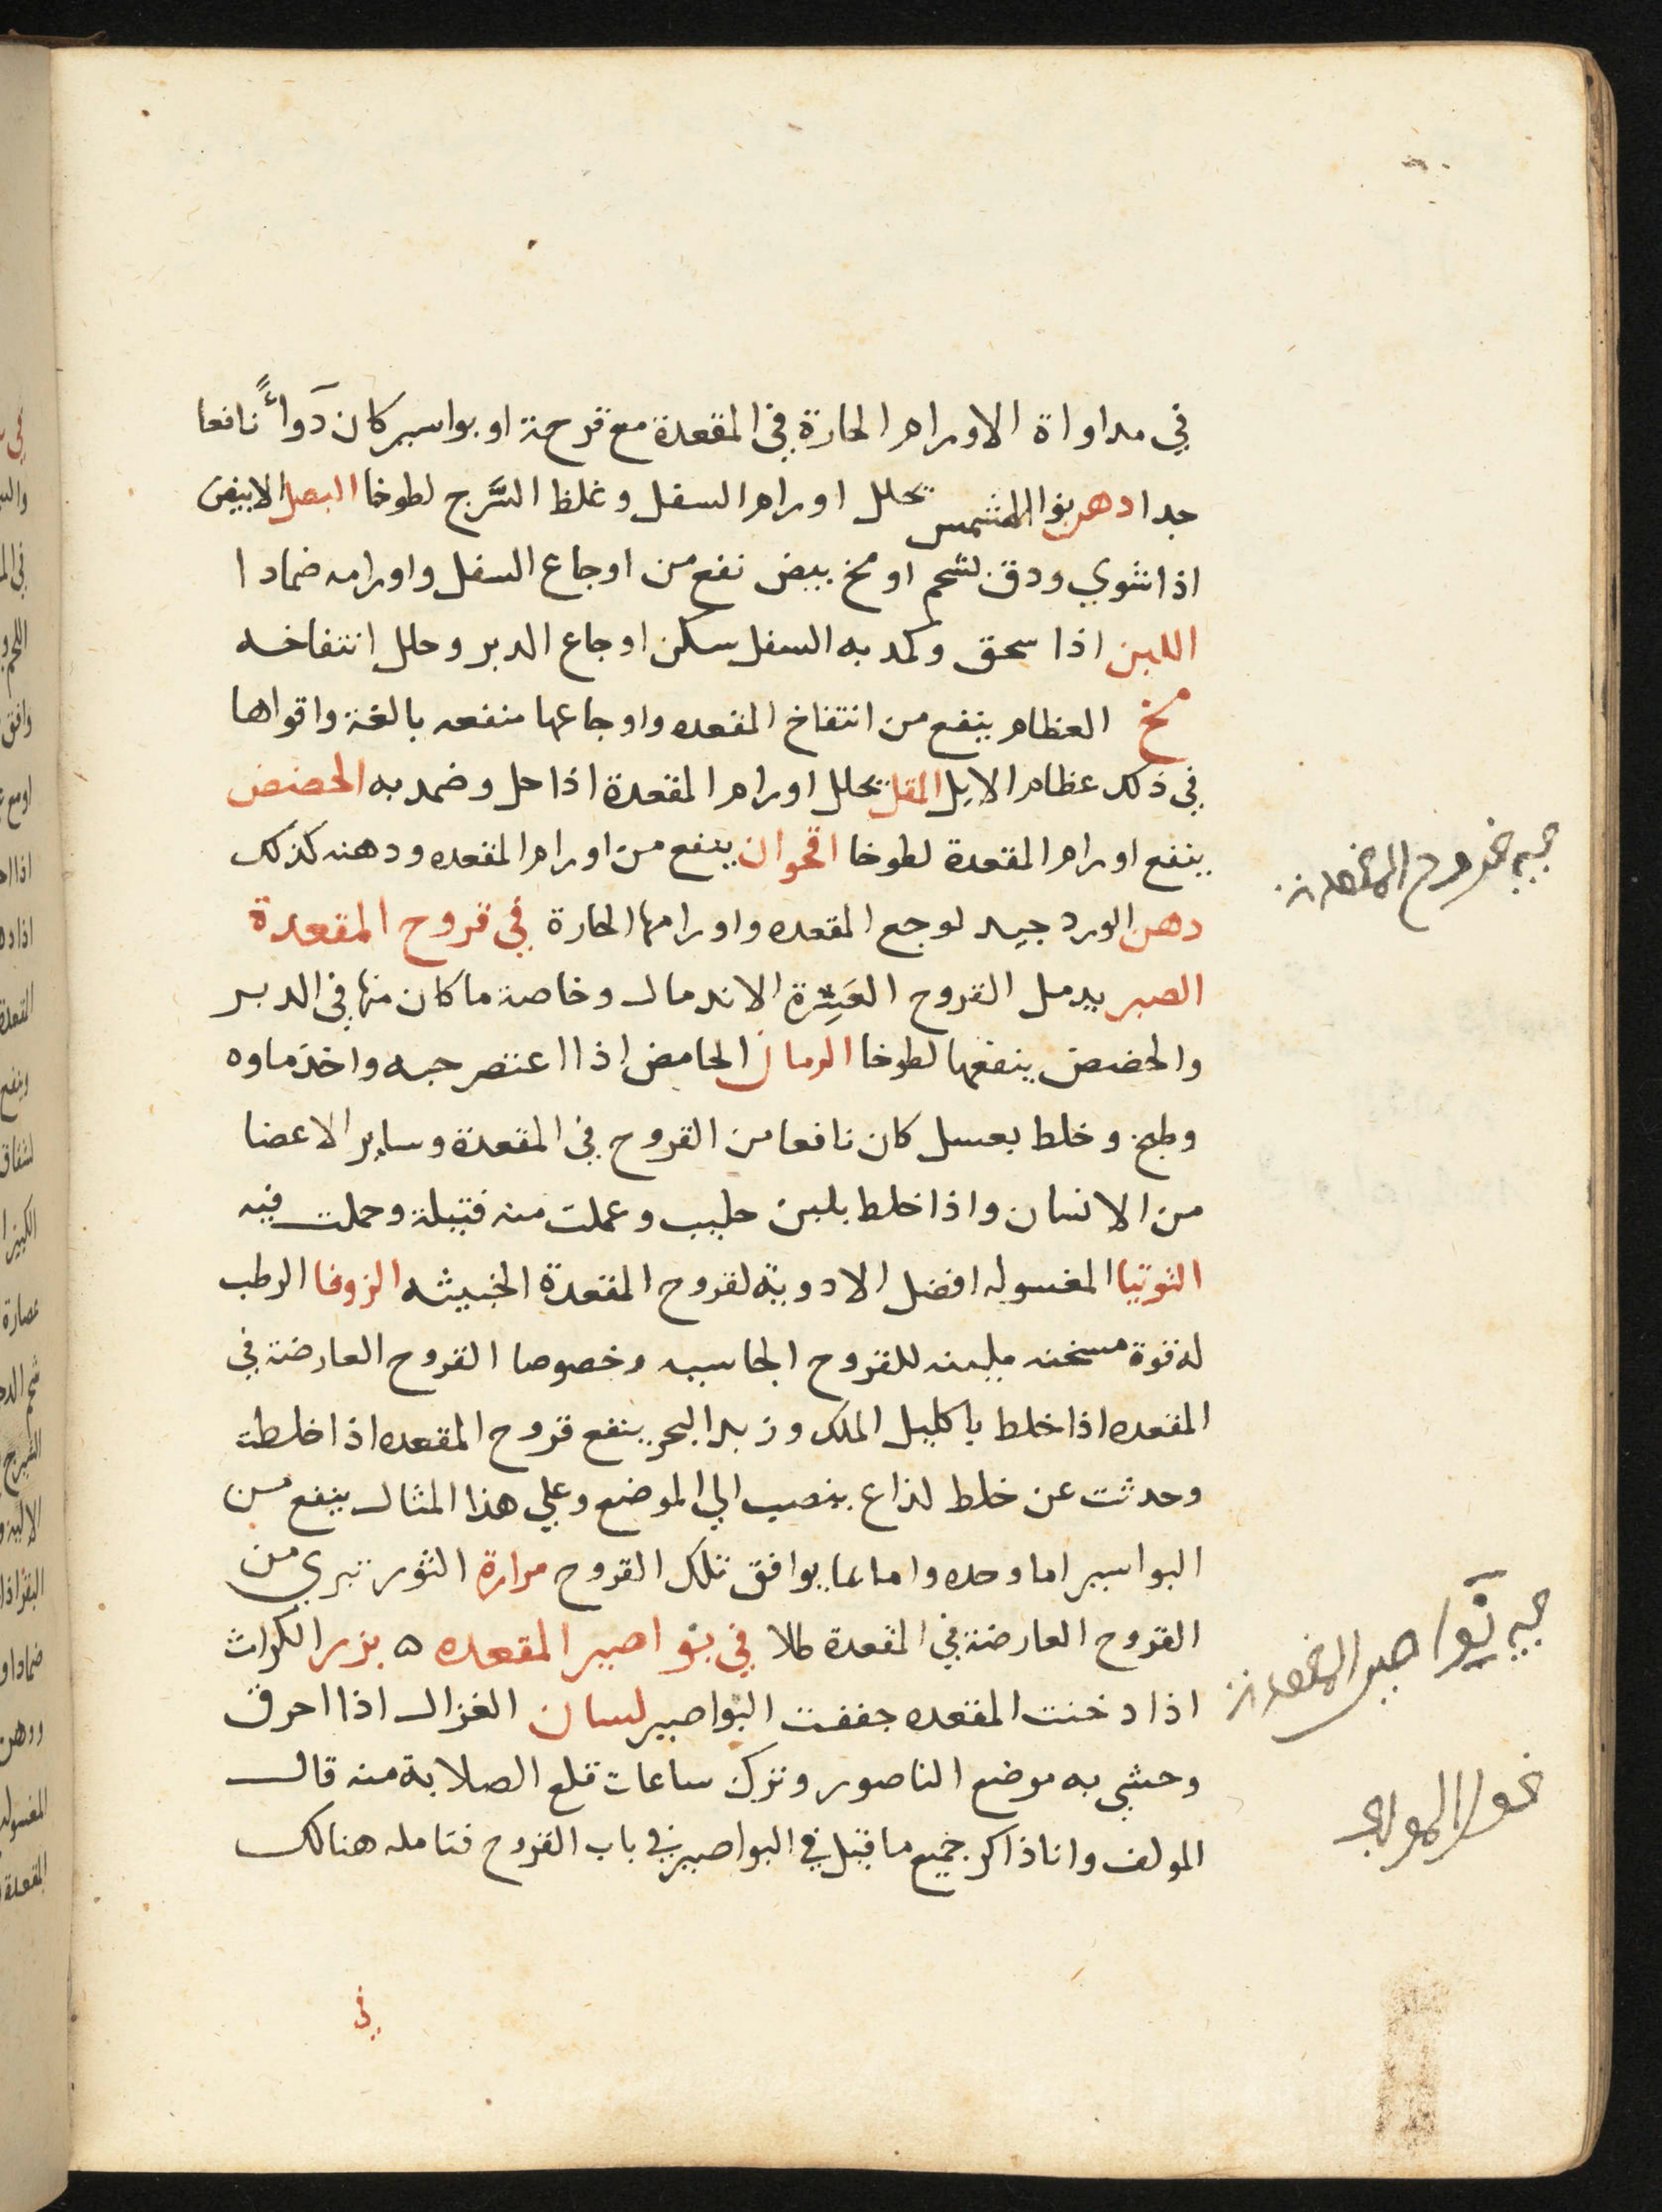 في مداواة الاورام الحارة في المقعدة مع قرحة او بواسير كان دوآءً نافعا
جدا دهن نوا المشمس يحلل اورام السفل وغلظ الشَّرج لطوخا البصل الابيض
اذا شوي ودق بشحم او مخ بيض نفع من اوجاع السفل واورامه ضمادا
اللبن اذا سحق وكمد به السفل سكن اوجاع الدبر وحلل انتفاخه
مخ العظام ينفع من انتفاخ المقعده واوجاعها منفعه بالغة واقواها
في ذلك عظام الايل المقل يحلل اورام المقعدة اذا حل وضمد به الحضض
ينفع اورام المقعدة لطوخا اقحوان ينفع من اورام المقعده ودهنه كذلك
دهن الورد جيد لوجع المقعده واورامها الحارة في قروح المقعدة
الصبر يدمل القروح العَسِرة الاندمال وخاصة ما كان منها في الدبر
والحضض ينفعها لطوخا الرمان الحامض اذا اعتصر حبه واخذ ماوه
وطبخ وخلط بعسل كان نافعا من القروح في المقعدة وساير الاعضا
من الانسان واذا خلط بلبن حليب وعملت منه فتيلة وحملت فيه
التوتيا المغسوله افضل الادوية لقروح المقعدة الخبيثه الزوفا الرطب
له قوة مسخنه ملينه للقروح الجاسيه وخصوصا القروح العارضة في
المقعده اذا خلط باكليل الملك وزبد البحر ينفع قروح المقعده اذا خلطت
وحدثت عن خلط لذاع ينصب الي الموضع وعلي هذا المثال ينفع من
البواسير اما وحده واما بما يوافق تلك القروح مرارة الثور تبري من
القروح العارضة في المقعدة طلا في نواصير المقعده ٥ بزر الكراث
اذا دخنت المقعده جففت البواصير لسان الغزال اذا احرق
وحشي به موضع الناصور وترك ساعات قلع الصلابة منه قال
المولف وانا ذاكر جميع ما قيل في البواصير في باب القروح فتامله هنالك
في